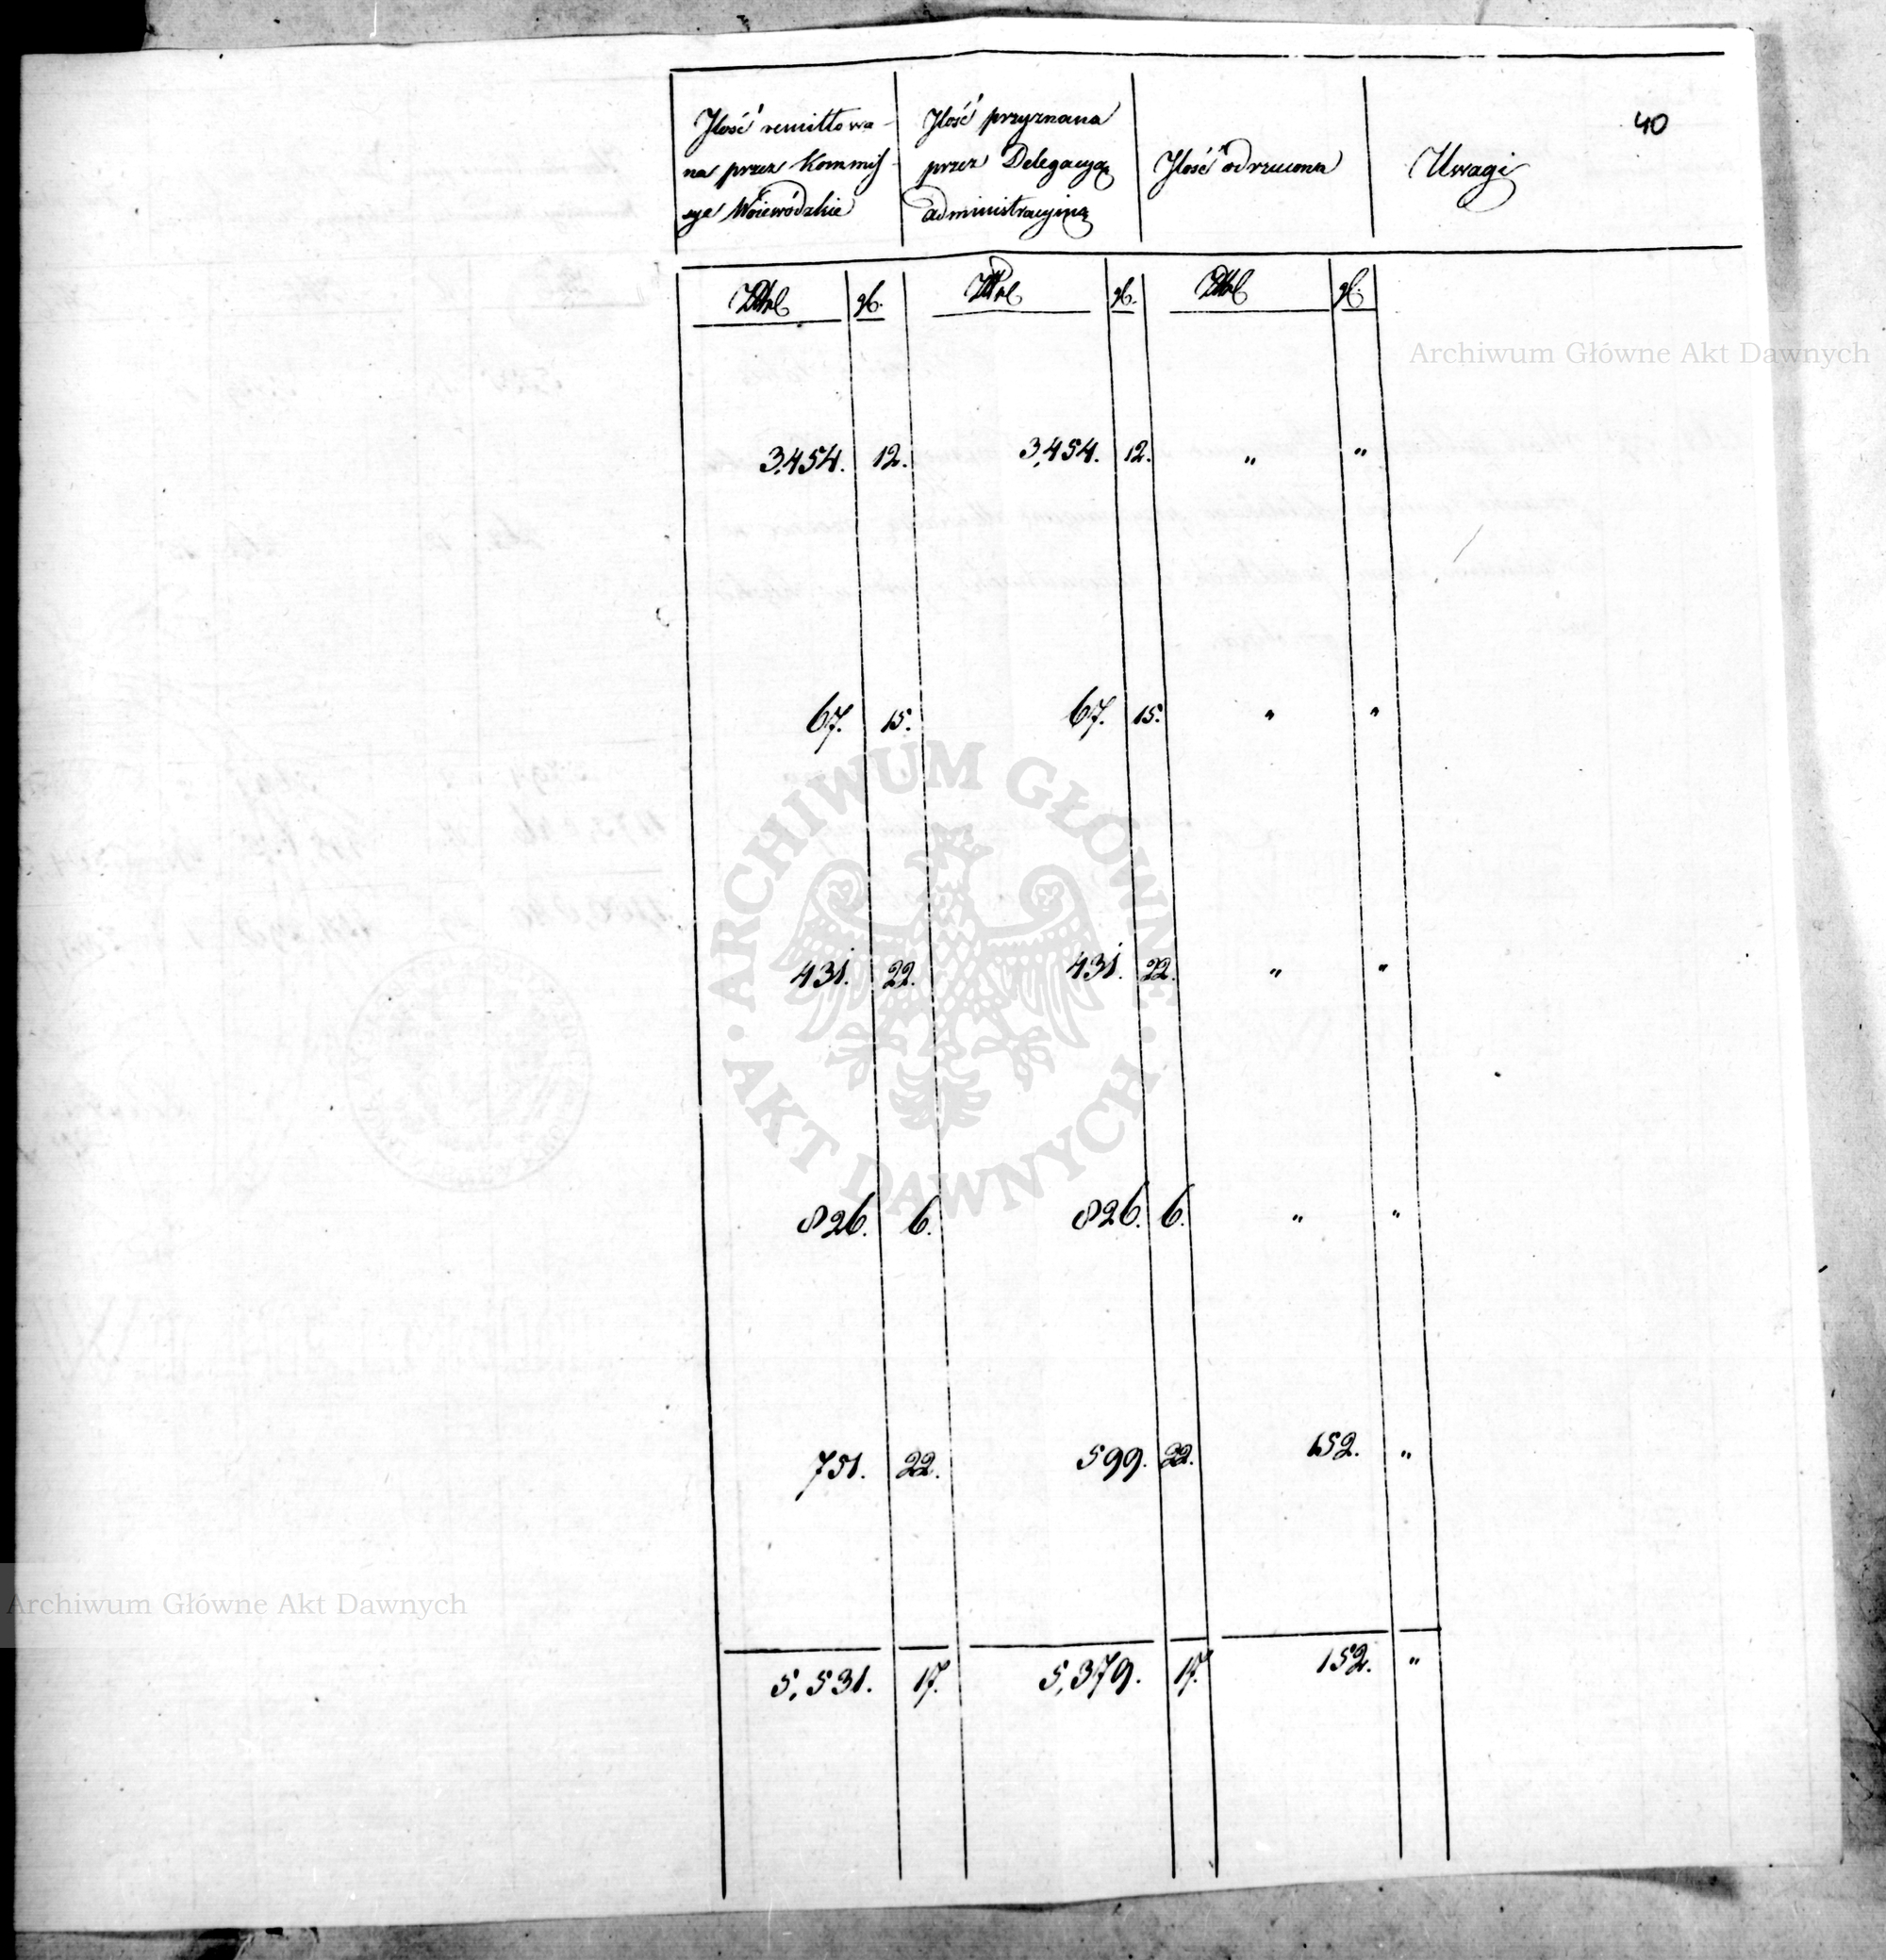 40
Ilość remittowa-
na przez Kommis-
sye Woiewódzkie
Ilość przyznana
przez Delegacyą
administracyiną
Ilość odrzucona
Uwagi
Złtpl gr. Złtpl gr. Złtpl gr.
Archiwum Główne Akt Dawnych
3,454. 12. 3,454. 12. " "
67. 15. 67. 15. " "
ARCHIWUM GŁÓWNE · AKT DAWNYCH ·
431. 22. 431. 22. " "
826. 6. 826. 6. " "
751. 22. 599. 22. 152. "
Archiwum Główne Akt Dawnych
5,531. 17. 5,379. 17. 152. "